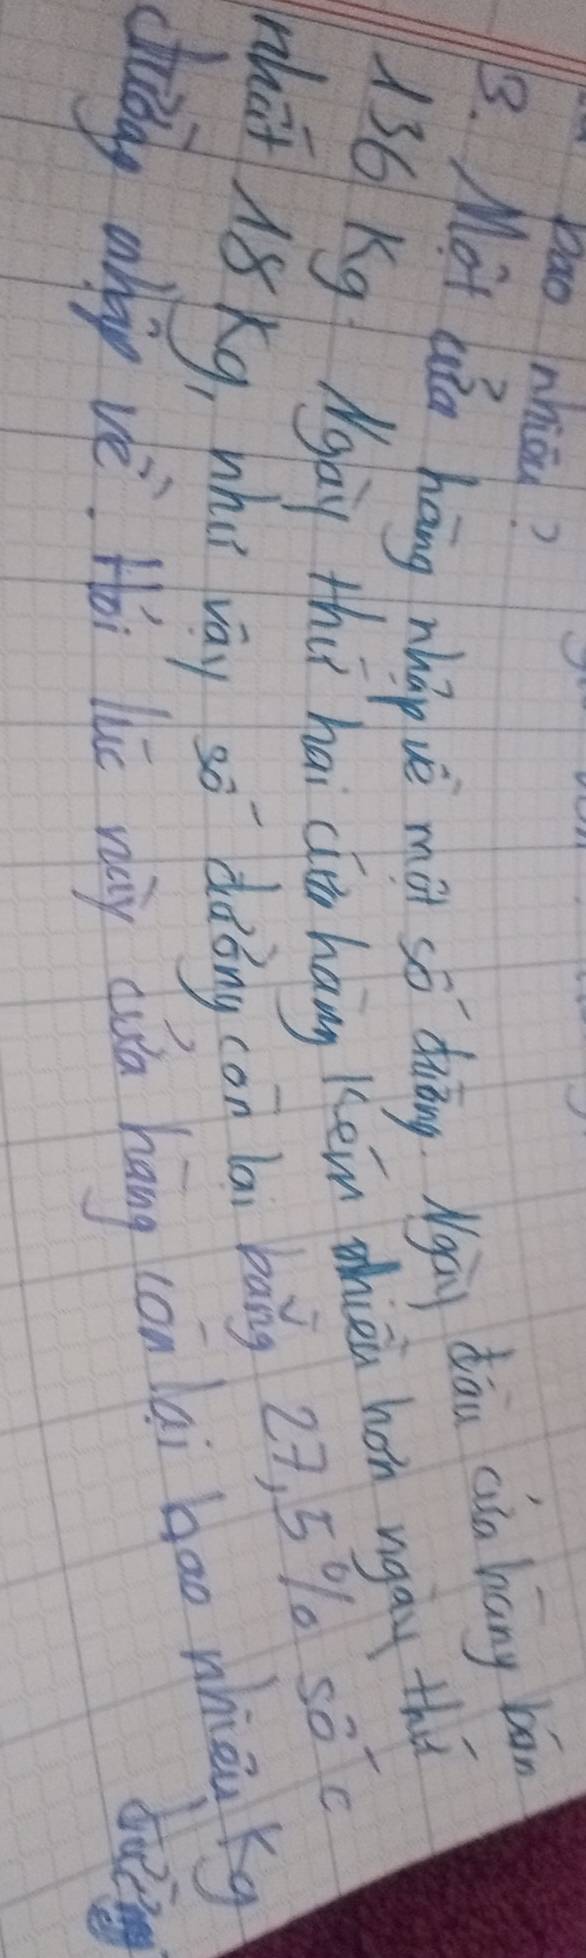 bao nhiêu?
3. Một cửa hàng nhập về một số đường. Ngày đầu cửa hàng bán
136 kg. Ngày thứ hai cửa hàng kém nhiều hơn ngày thứ
nhất 18 kg, như vậy số đường còn lại bằng 27,5% số
đường nhập về. Hỏi lúc này cửa hàng còn lại bao nhiêu kg
đường